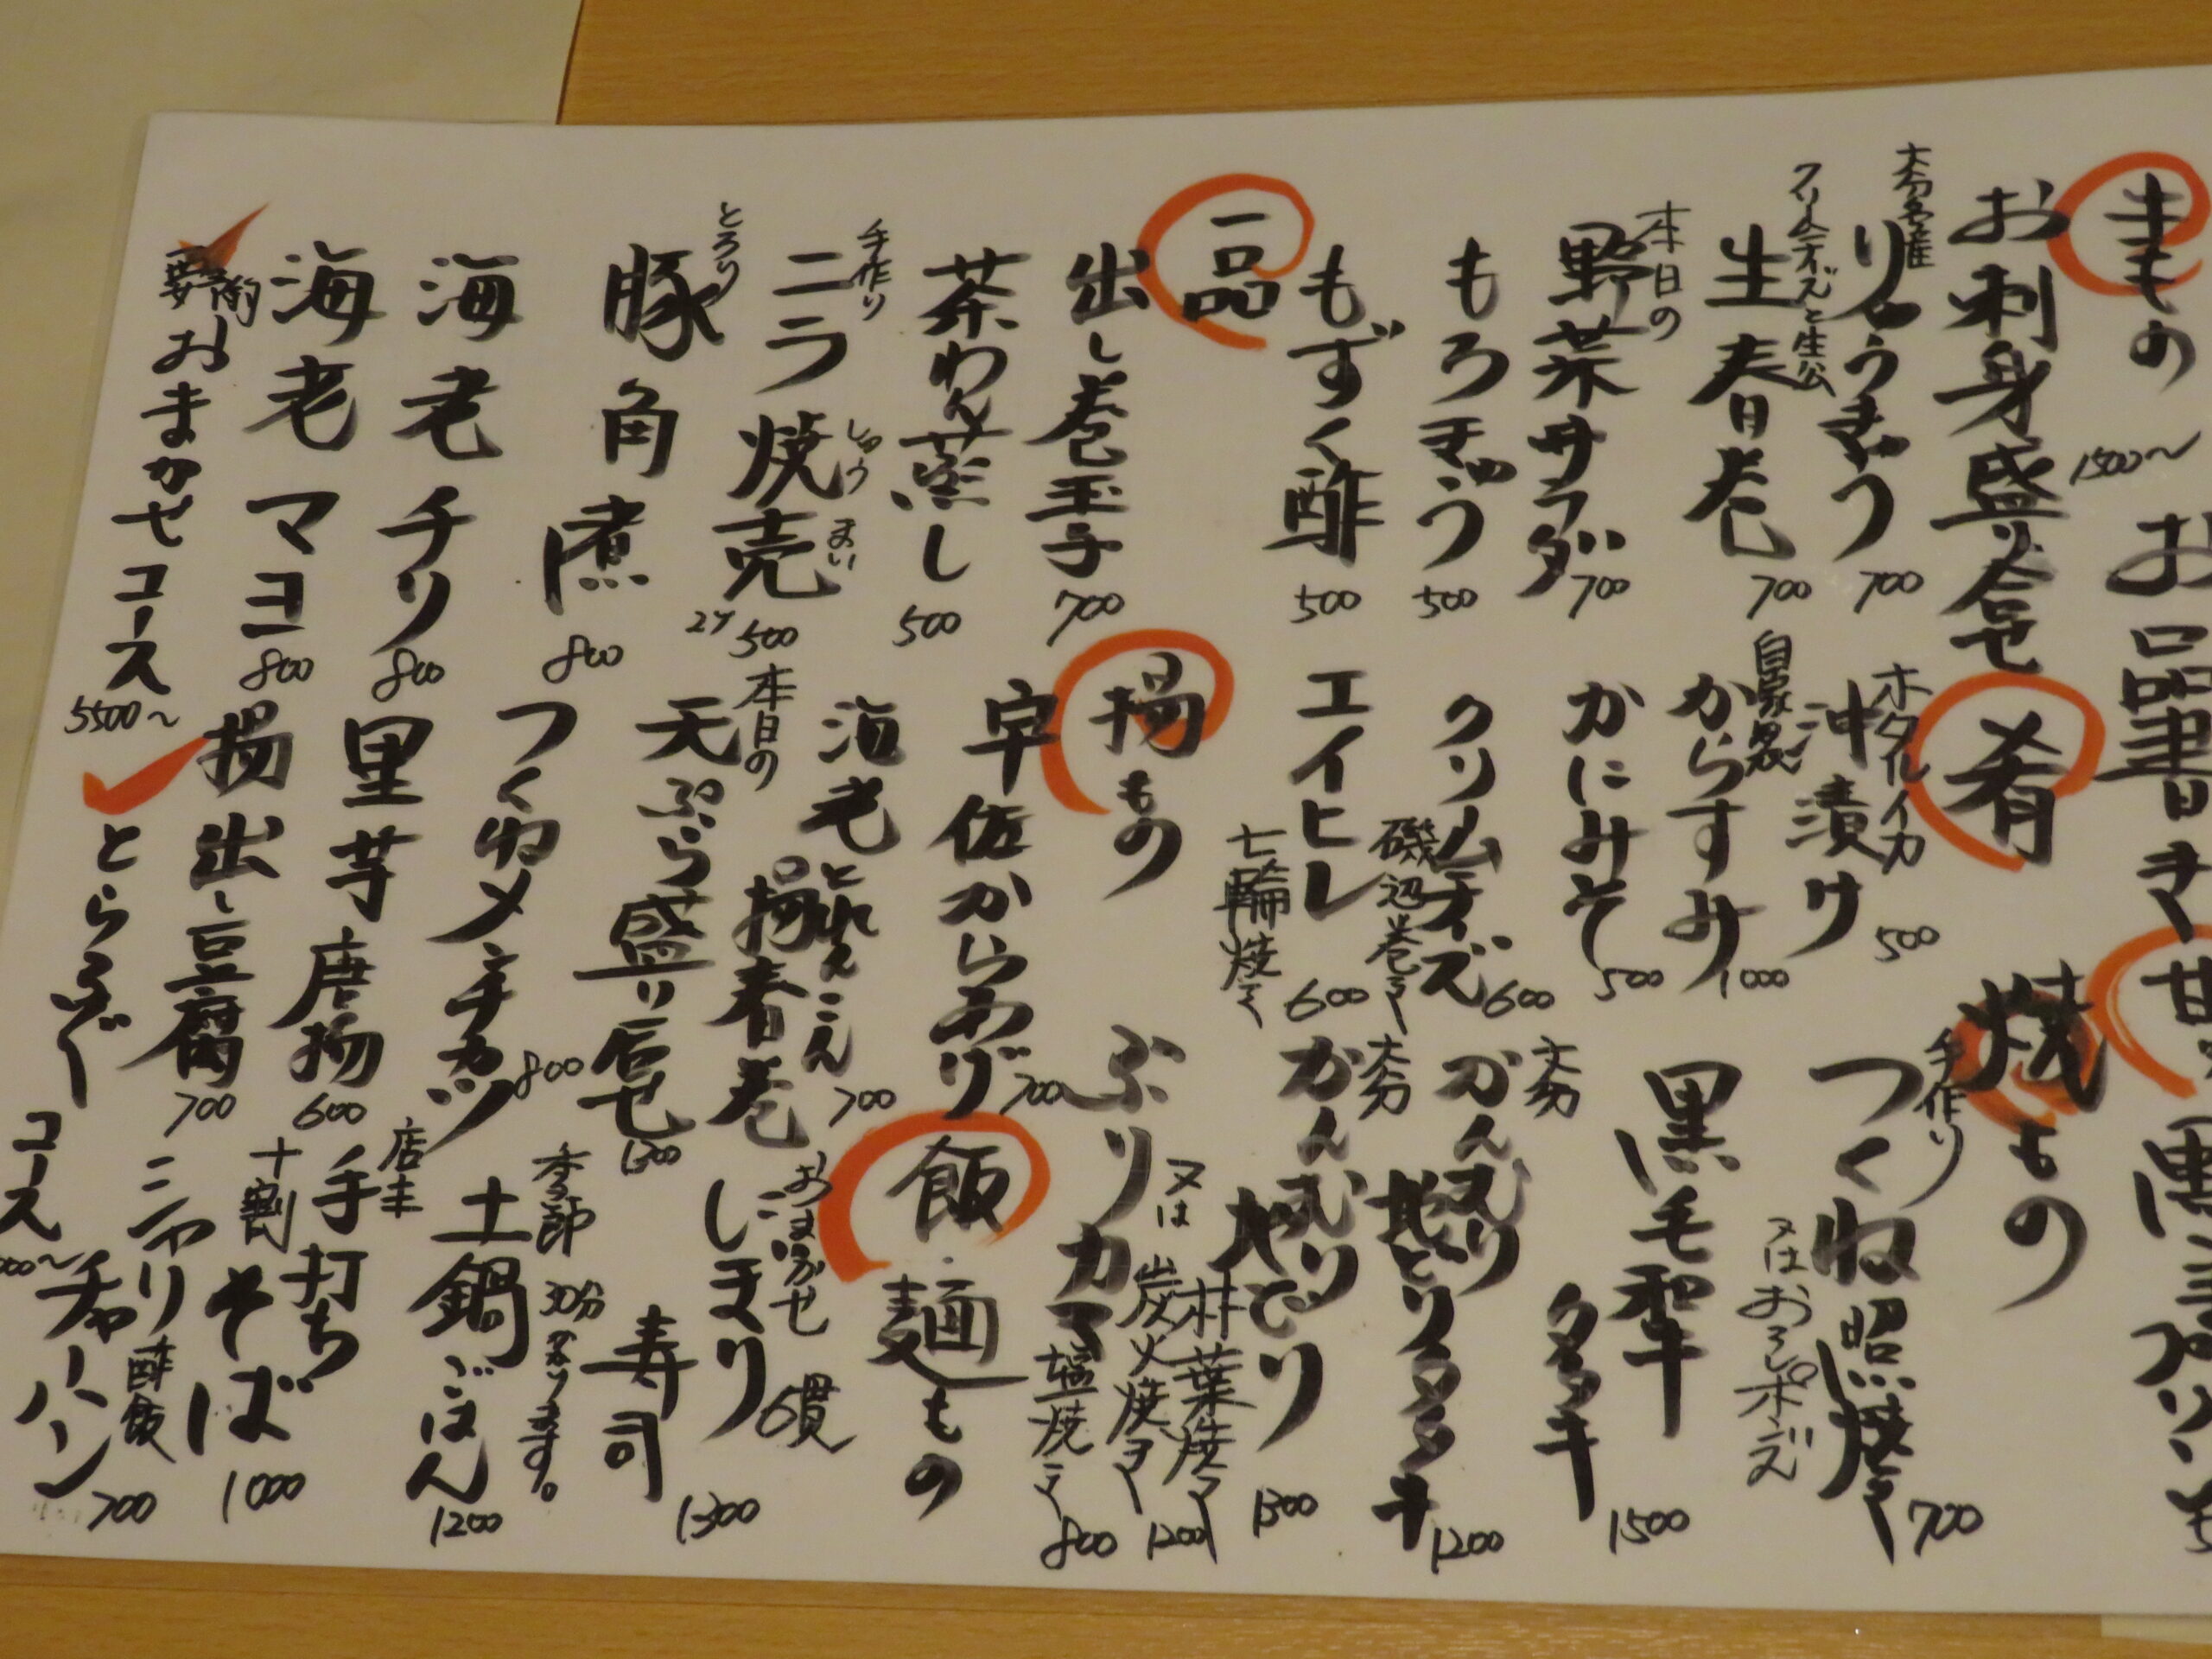 お品書き
生もの
お刺身盛り合せ 1500〜
大分名産
りゅうきゅう 700
クリームチーズと生ハム
生春巻 700
本日の
野菜サラダ 700
もろきゅう 500
もずく酢 500
一品
出し巻玉子 700
茶わん蒸し 500
手作り
ニラ焼売 しゅうまい 2ケ 500
とろり
豚角煮 800
海老チリ 800
海老マヨ 800
おまかせコース 5500〜
肴
ホタルイカ
沖漬け 500
自家製
からすみ 1000
かにみそ 500
クリームチーズ 600
磯辺巻き
エイヒレ 600
七輪焼き
揚もの
宇佐からあげ 700
海老とれんこん
揚春巻 700
本日の
天ぷら盛り合せ 1300
つくねメンチカツ 800
里芋唐揚 600
揚出し豆腐 700
とらふぐコース
焼もの
手作り
つくね照焼き 700
又はおろしポン酢
黒毛和牛タタキ 1500
大分
かんむり地どりタタキ 1200
大分
かんむり地どり 1300
又は
炭火焼き 1200
ぶりカマ塩焼き 800
飯・麺もの
おまかせ
にぎり 6貫
寿司 1300
季節
土鍋ごはん 1200
30分かかります。
店主
手打ち
十割
そば 1000
シャリ 酢飯
チャーハン 700